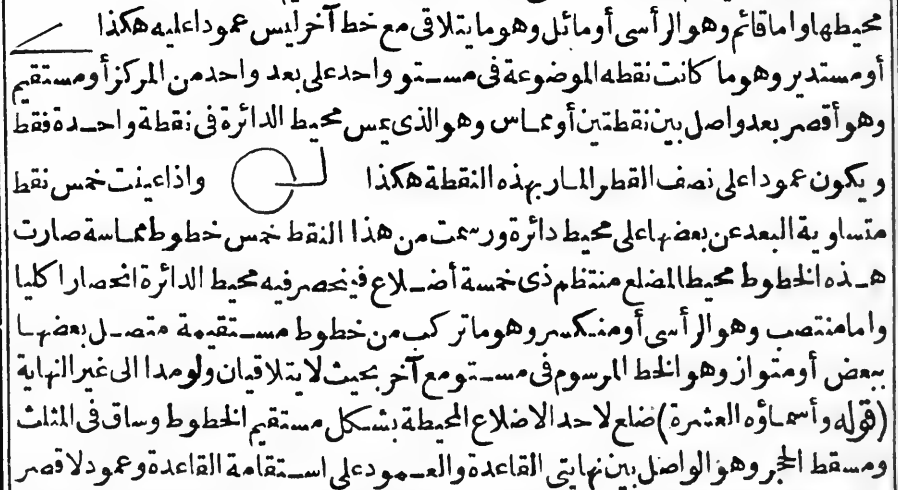 محيطها واما قائم وهو الرأسى أومائل وهو ما يتلاقى مع خط آخر ليس عموداعليه هكذا
أومستدير وهو ما كانت نقطه الموضوعة فى مستو واحد على بعد واحد من المركز أومستقيم
وهو أقصر بعد واصل بين نقطتين أومماس وهو الذى يمس محيط الدائرة فى نقطة واحدة فقط
ويكون عموداعلى نصف القطر المار بهذه النقطة هكذا واذاعينت خمس نقط
متساوية البعد عن بعضها على محيط دائرة ورسمت من هذا النقط خمس خطوط مماسة صارت
هذه الخطوط محيطا لمضلع منتظم ذى خمسة أضلاع فينحصر فيه محيط الدائرة انحصارا كليا
وامامنتصب وهو الرأسى أومنكسر وهو ماتركب من خطوط مستقيمة متصل بعضها
ببعض أومتواز وهو الخط المرسوم فى مستو مع آخر بحيث لا يتلاقيان ولو مدا الى غير النهاية
(قوله وأسماؤه العشرة) ضلع لاحد الاضلاع المحيطة بشكل مستقيم الخطوط وساق فى المثلث
ومسقط الحجر وهو الواصل بين نهايتى القاعدة والعمود على استقامة القاعدة وعمود لاقصر